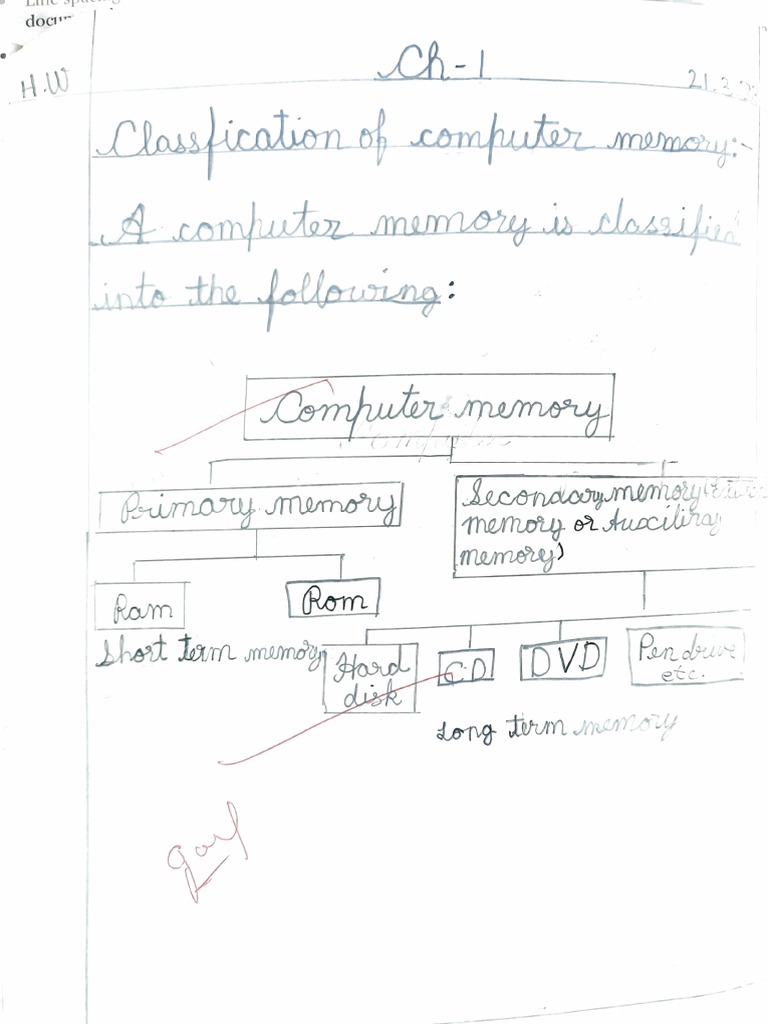 Line spacing
docum
H.W
Ch-1
21.3
Classfication of computer memory:-
A computer memory is classified
into the following:
Computer memory
Primary memory
Secondary memory(
memory or Auxciliray
memory)
Ram
Rom
Short term memory
Hard
disk
CD
DVD
Pen drive
etc.
Long term memory